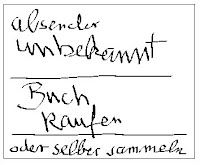 absender
unbekannt
Buch
kaufen
oder selber sammeln